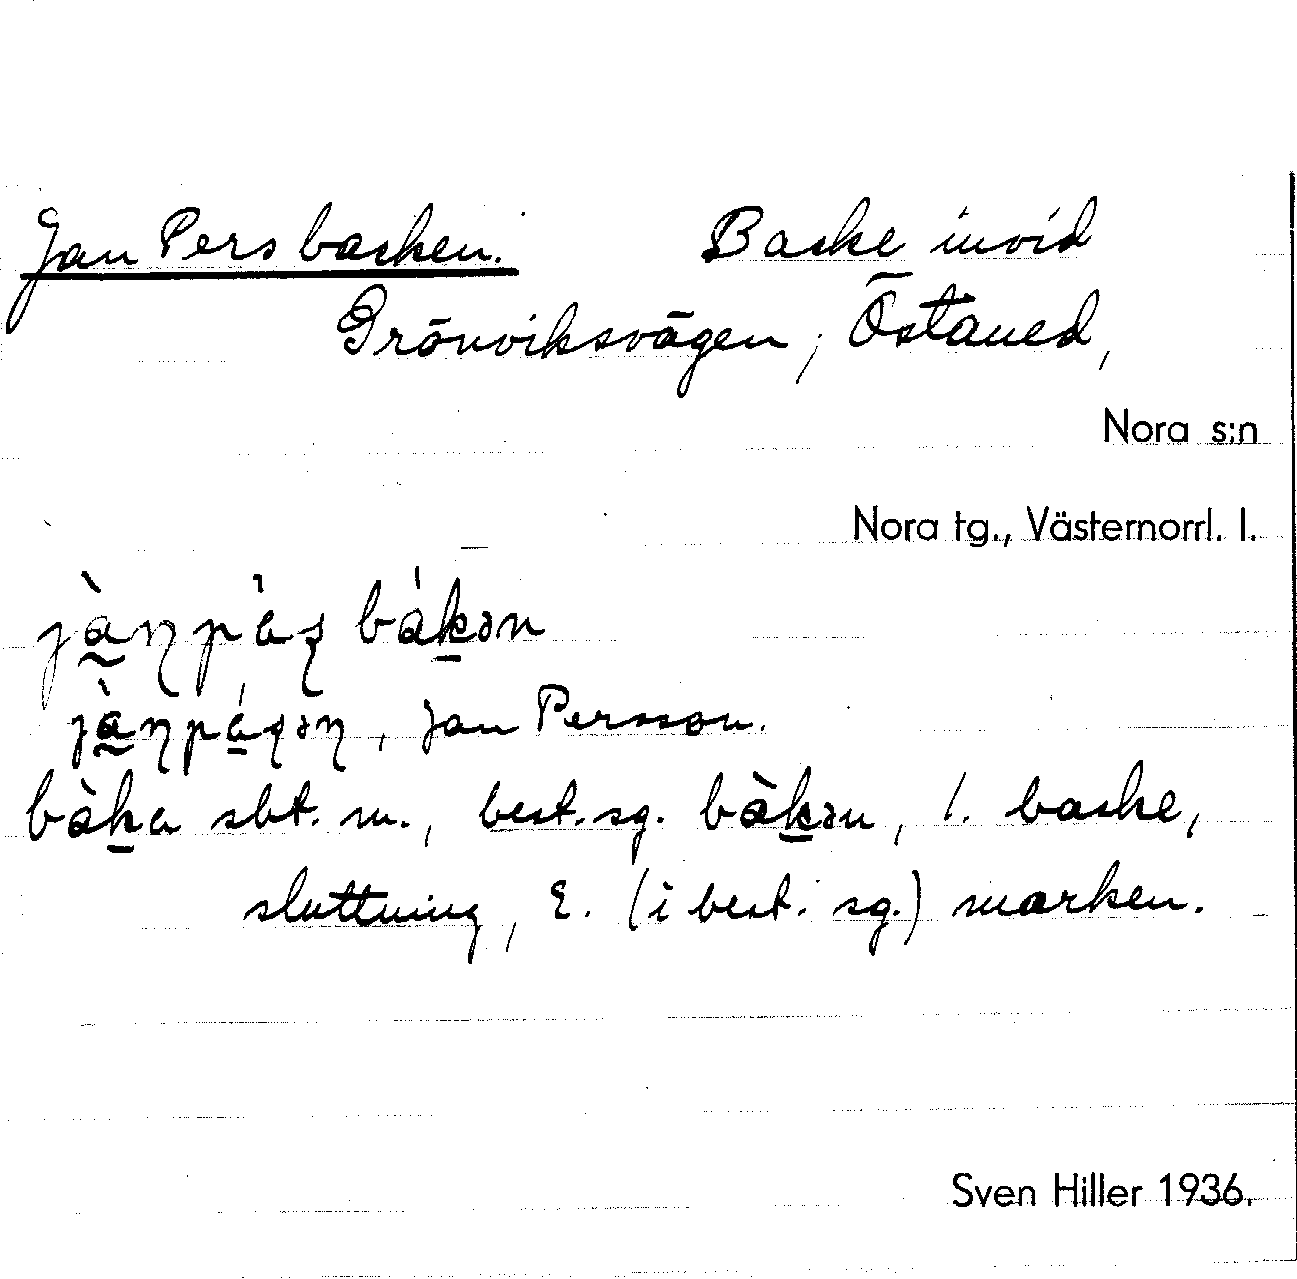 Jan Persbacken. Backe invid
Grönviksvägen, Östaned,
Nora s:n
Nora tg., Västernorrl. l.
jàn̡pàʂ bákən
jàn̡páʂən̡, Jan Persson.
bàka sbt. m., best. sg. bàkən, 1. backe,
sluttning, 2. (i best. sg.) marken.
Sven Hiller 1936.